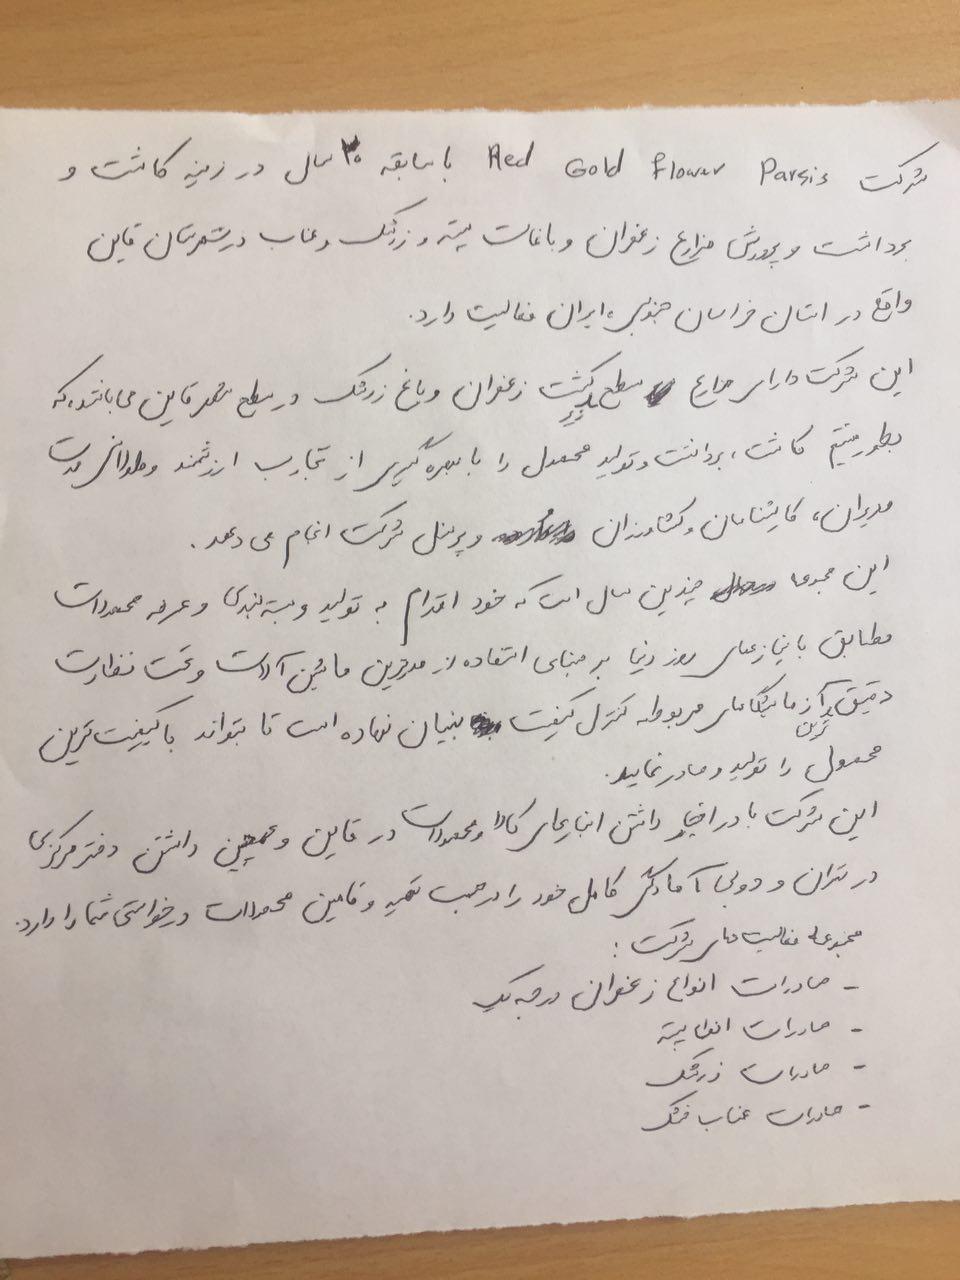 شرکت Red Gold Flower Parsis با سابقه ۳۰ سال در زمینه کاشت و
برداشت و پرورش مزارع زعفران و باغات پسته و زرشک و عناب در شهرستان قاین
واقع در استان خراسان جنوبی، ایران فعالیت دارد.
این شرکت دارای مزارع سطح کشت زعفران و باغ زرشک در سطح شهر قاین می باشد، که
بطور مستقیم کاشت، برداشت و تولید محصول را با بهره گیری از تجارب ارزشمند و طولانی مدت
مدیران، کارشناسان و کشاورزان و پرسنل شرکت انجام می دهد.
این مجموعه چندین سال است که خود اقدام به تولید و بسته بندی و عرضه محصولات
مطابق با نیازهای روز دنیا بر مبنای استفاده از مدرنترین ماشین آلات و تحت نظارت
دقیق ترین آزمایشگاه های مربوطه کنترل کیفیت بنیان نهاده است تا بتواند با کیفیت ترین
محصول را تولید و صادر نماید.
این شرکت با در اختیار داشتن انبارهای کالا و محصولات در قاین و همچنین داشتن دفتر مرکزی
در تهران و دوبی آمادگی کامل خود را در جهت تهیه و تامین محصولات درخواستی شما را دارد.
مجموعه فعالیت های شرکت :
- صادرات انواع زعفران درجه یک
- صادرات انواع پسته
- صادرات زرشک
- صادرات عناب خشک